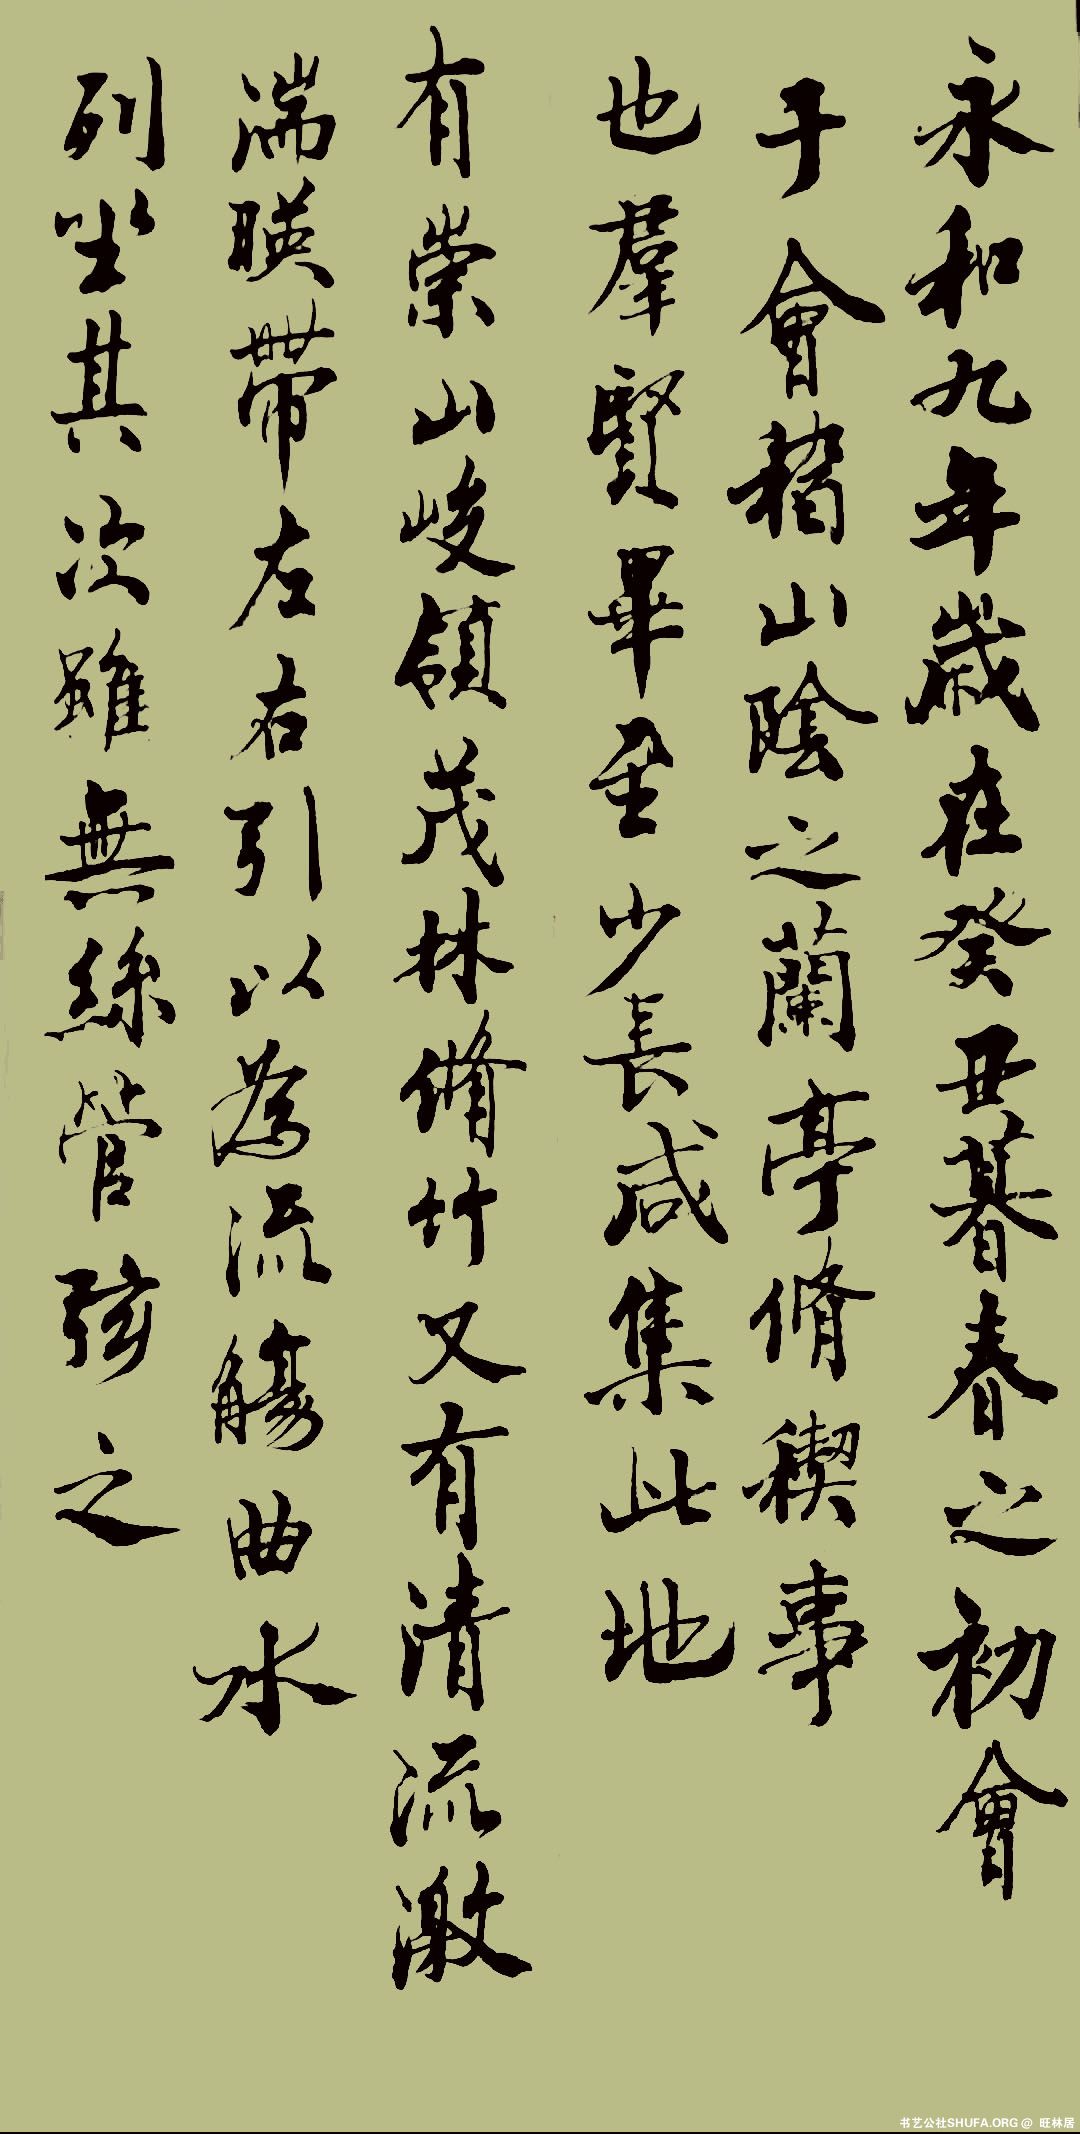 永和九年歲在癸丑暮春之初會
于會稽山陰之蘭亭脩稧事
也羣賢畢至少長咸集此地
有崇山峻領茂林脩竹又有清流激
湍暎帶左右引以為流觴曲水
列坐其次雖無絲管弦之
书艺公社SHUFA.ORG @ 旺林居